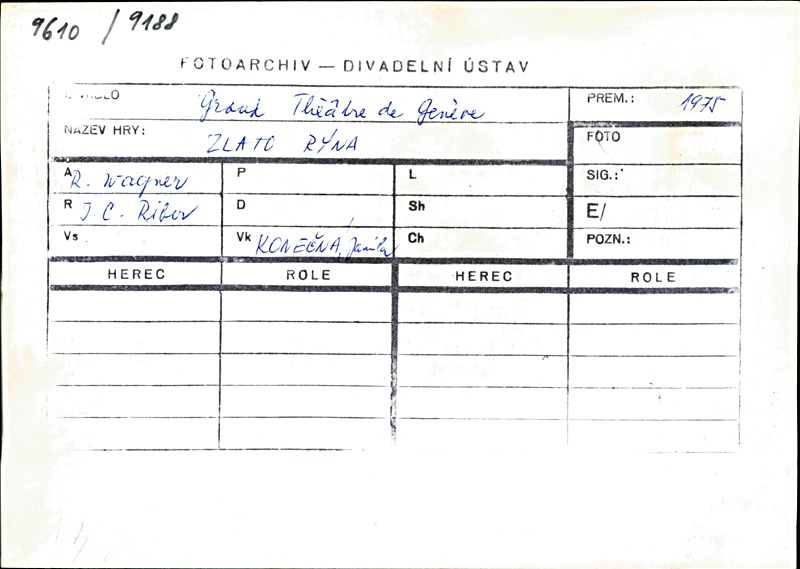 9610 / 9188
FOTOARCHIV — DIVADELNÍ ÚSTAV
Grand Théâtre de Genève PREM.: 1975
NÁZEV HRY: ZLATO RÝNA FOTO
A R. Wagner P L SIG.:
R J. C. Riber D Sh E/
Vs Vk KONEČNÁ, Jarmila Ch POZN.:
HEREC ROLE HEREC ROLE